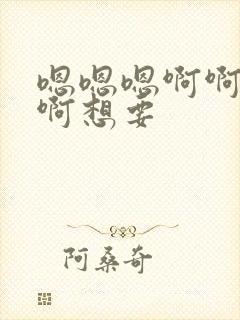 嗯嗯嗯啊啊
啊想要
阿桑奇